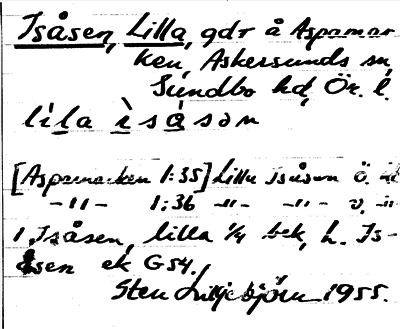 Isåsen, Lilla, gdr å Aspamar
ken, Askersunds sn,
Sundbo hd, Ör. l.
lìla ìsåsən
[Aspamarken 1:35] Lilla Isåsen ö.
-"- 1:36 -"- -"- v. -"-
1, Isåsen, lilla 1/4 bek, h. Is-
åsen ek G54.
Sten Liljebjörn 1955.